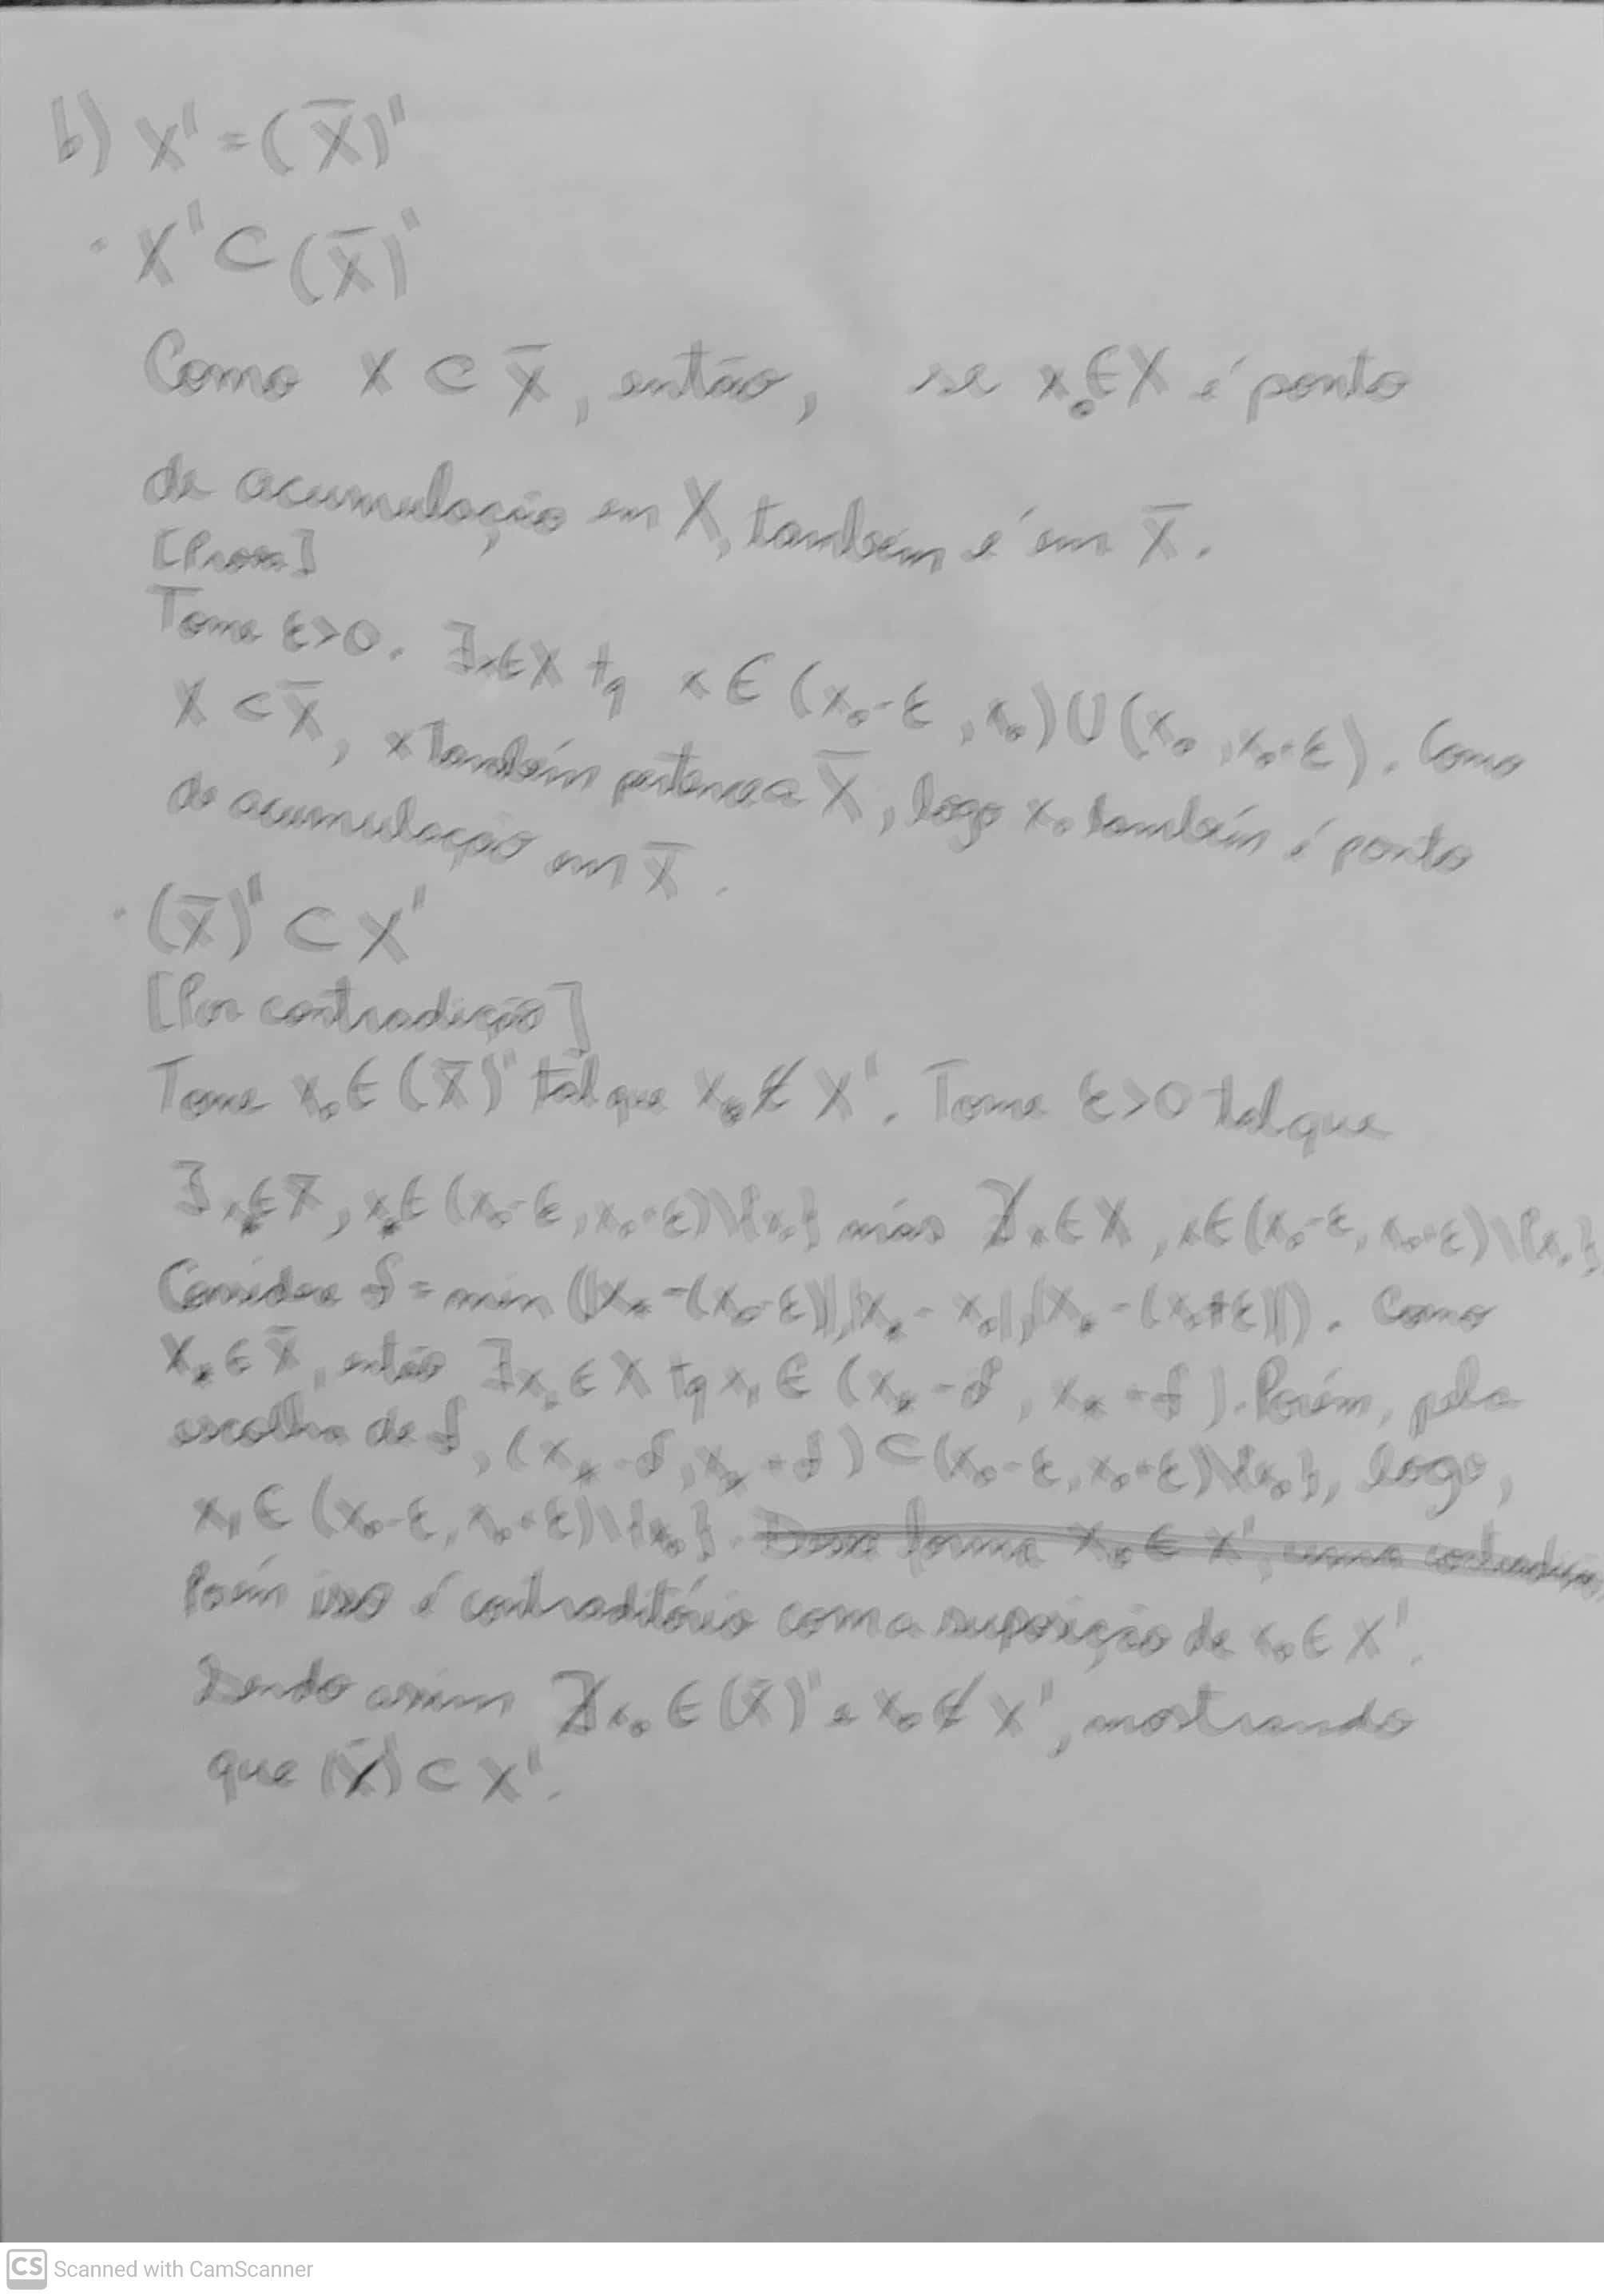 b) X' = (X̄)'
· X' ⊂ (X̄)'
Como X ⊂ X̄, então, se x₀ ∈ X é ponto
de acumulação em X, também é em X̄.
[Prova]
Tome ε>0. ∃x∈X tq x ∈ (x₀-ε, x₀) ∪ (x₀, x₀+ε). Como
X ⊂ X̄, x também pertence a X̄, logo x₀ também é ponto
de acumulação em X̄.
· (X̄)' ⊂ X'
[Por contradição]
Tome x₀ ∈ (X̄)' tal que x₀ ∉ X'. Tome ε>0 tal que
∃x*∈X̄, x*∈(x₀-ε, x₀+ε)\{x₀} mas ∄x∈X, x∈(x₀-ε, x₀+ε)\{x₀}
Considere δ = min(|x*-(x₀-ε)|,|x*-x₀|,|x*-(x₀+ε)|). Como
x*∈X̄, então ∃x₁∈X tq x₁ ∈ (x*-δ, x*+δ). Porém, pela
escolha de δ, (x*-δ, x*+δ) ⊂ (x₀-ε, x₀+ε)\{x₀}, logo,
x₁ ∈ (x₀-ε, x₀+ε)\{x₀}. Dessa forma x₀ ∈ X', uma contradição
Porém isso é contraditório com a suposição de x₀ ∈ X'.
Sendo assim ∄x₀ ∈ (X̄)' e x₀ ∉ X', mostrando
que (X̄)' ⊂ X'.
CS Scanned with CamScanner